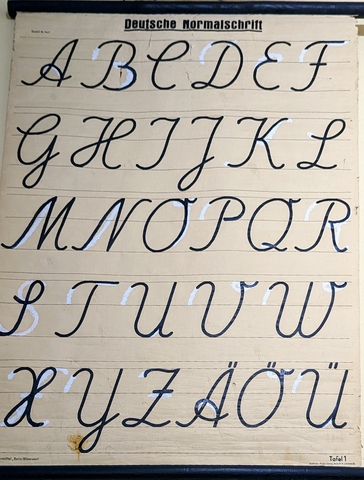 Deutsche Normalschrift
A B C D E F
G H I J K L
M N O P Q R
S T U V W
X Y Z Ä Ö Ü
Tafel 1